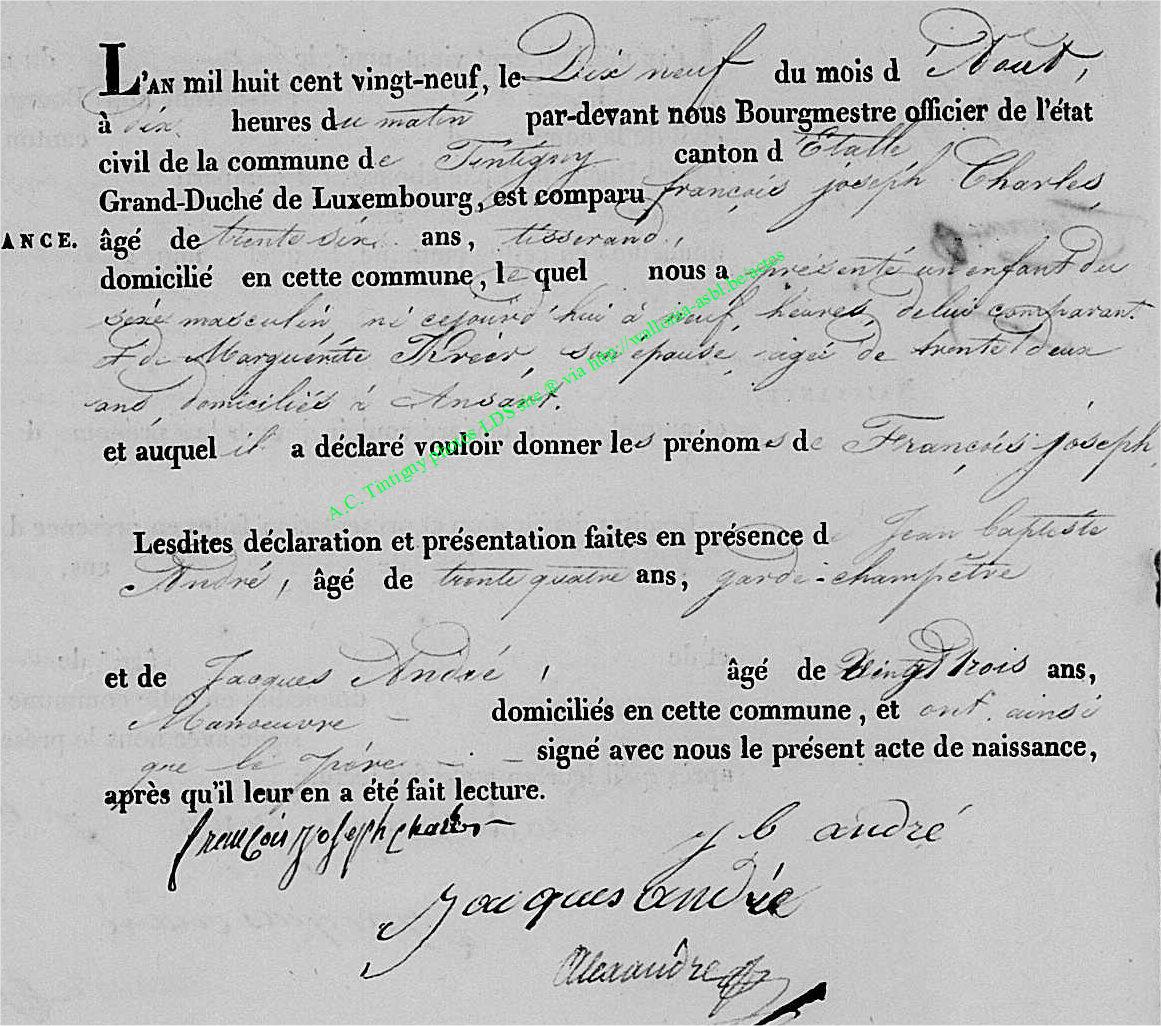 L'AN mil huit cent vingt-neuf, le Dix neuf du mois d'Aout,
à dix heures du matin par-devant nous Bourgmestre officier de l'état
civil de la commune de Tintigny canton d'Etalle,
Grand-Duché de Luxembourg, est comparu françois joseph Charles
ANCE. âgé de trente six ans, tisserand,
domicilié en cette commune, le quel nous a présenté un enfant du
sexe masculin né cejourd'hui à neuf heures, de lui comparant
& de Marguérite Kréer, son épouse, agée de trente deux
ans domiciliés à Ansart.
et auquel il a déclaré vouloir donner les prénoms de François joseph
Lesdites déclaration et présentation faites en présence de Jean baptiste
André, âgé de trente quatre ans, garde-champêtre
et de Jacques André, âgé de Vingt trois ans,
Manoeuvre domiciliés en cette commune, et ont ainsi
que le père signé avec nous le présent acte de naissance,
après qu'il leur en a été fait lecture.
francois joseph charles
j b andré
jacques andré
Alexandre
A.C. Tintigny photos LDS site ® via http://wallonia-asbl.be/actes